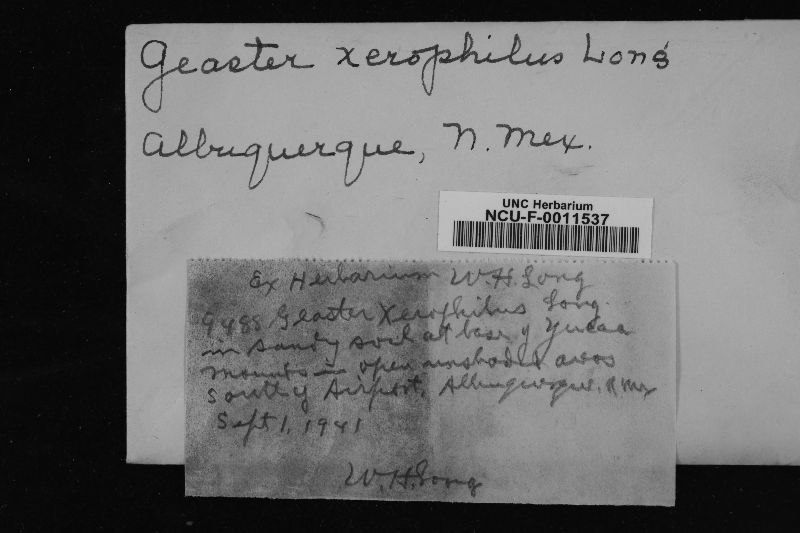 Geaster xerophilus Long
Albuquerque, N. Mex.
UNC Herbarium
NCU-F-0011537
Ex Herbarium W.H. Long
9488 Geaster Xerophilus Long.
in sandy soil at base of Yucca
mounts in open unshaded areas
south of Airport, Albuquerque, N Mex
Sept 1, 1941
W.H. Long